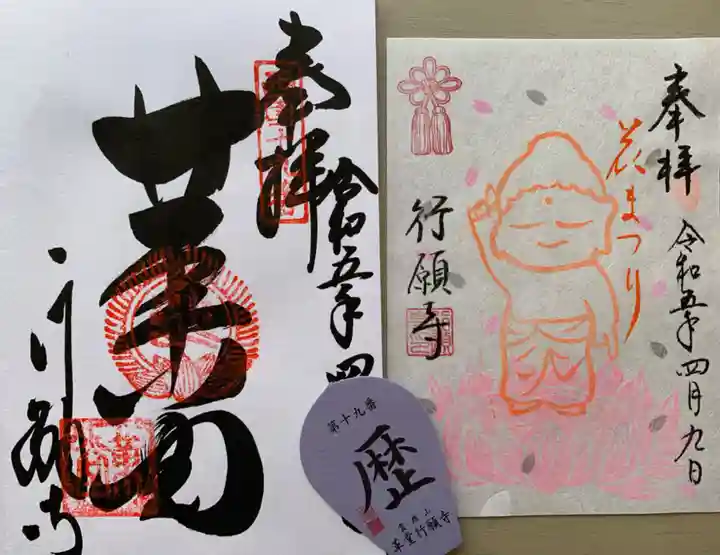 奉拝
令和五年四
革堂
行願寺
第十九番
歴
霊麀山
革堂行願寺
奉拝
花まつり
令和五年四月九日
行願寺